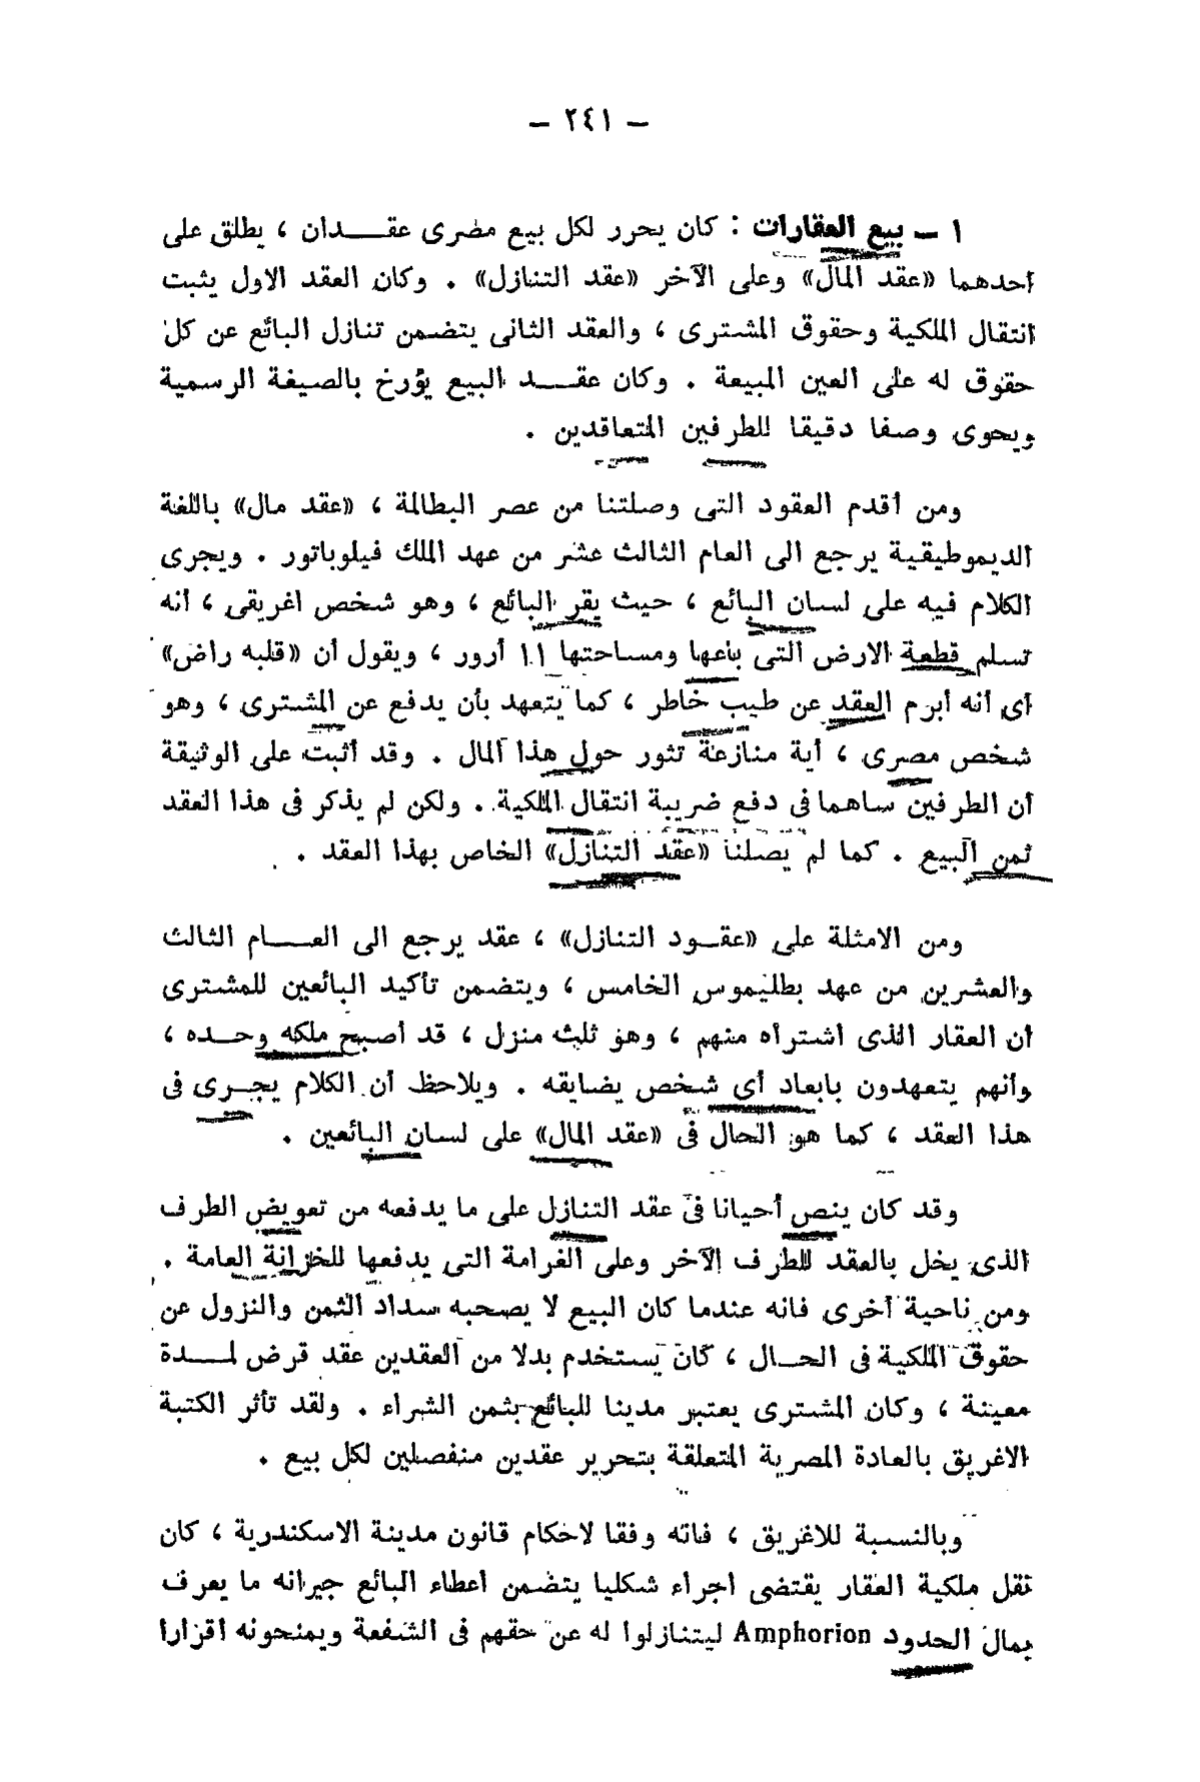 — ٢٤١ —
١ — بيع العقارات : كان يحرر لكل بيع مصرى عقـــدان ، يطلق على
أحدهما «عقد المال» وعلى الآخر «عقد التنازل» . وكان العقد الاول يثبت
انتقال الملكية وحقوق المشترى ، والعقد الثانى يتضمن تنازل البائع عن كل
حقوق له على العين المبيعة . وكان عقــد البيع يؤرخ بالصيغة الرسمية
ويحوى وصفا دقيقا للطرفين المتعاقدين .
ومن أقدم العقود التى وصلتنا من عصر البطالمة ، «عقد مال» باللغة
الديموطيقية يرجع الى العام الثالث عشر من عهد الملك فيلوباتور . ويجرى
الكلام فيه على لسان البائع ، حيث يقر البائع ، وهو شخص اغريقى ، أنه
تسلم قطعة الارض التى باعها ومساحتها ١١ أرور ، ويقول أن «قلبه راض»
أى أنه أبرم العقد عن طيب خاطر ، كما يتعهد بأن يدفع عن المشترى ، وهو
شخص مصرى ، أية منازعة تثور حول هذا المال . وقد أثبت على الوثيقة
أن الطرفين ساهما فى دفع ضريبة انتقال الملكية . ولكن لم يذكر فى هذا العقد
ثمن البيع . كما لم يصلنا «عقد التنازل» الخاص بهذا العقد .
ومن الامثلة على «عقــود التنازل» ، عقد يرجع الى العــــام الثالث
والعشرين من عهد بطليموس الخامس ، ويتضمن تأكيد البائعين للمشترى
أن العقار الذى اشتراه منهم ، وهو ثلث منزل ، قد أصبح ملكه وحــده ،
وأنهم يتعهدون بابعاد أى شخص يضايقه . ويلاحظ أن الكلام يجــرى فى
هذا العقد ، كما هو الحال فى «عقد المال» على لسان البائعين .
وقد كان ينص أحيانا فى عقد التنازل على ما يدفعه من تعويض الطرف
الذى يخل بالعقد للطرف الآخر وعلى الغرامة التى يدفعها للخزانة العامة .
ومن ناحية أخرى فانه عندما كان البيع لا يصحبه سداد الثمن والنزول عن
حقوق الملكية فى الحــال ، كان يستخدم بدلا من العقدين عقد قرض لمـــدة
معينة ، وكان المشترى يعتبر مدينا للبائع بثمن الشراء . ولقد تأثر الكتبة
الاغريق بالعادة المصرية المتعلقة بتحرير عقدين منفصلين لكل بيع .
وبالنسبة للاغريق ، فانه وفقا لاحكام قانون مدينة الاسكندرية ، كان
نقل ملكية العقار يقتضى اجراء شكليا يتضمن اعطاء البائع جيرانه ما يعرف
بمال الحدود Amphorion ليتنازلوا له عن حقهم فى الشفعة ويمنحونه اقرارا